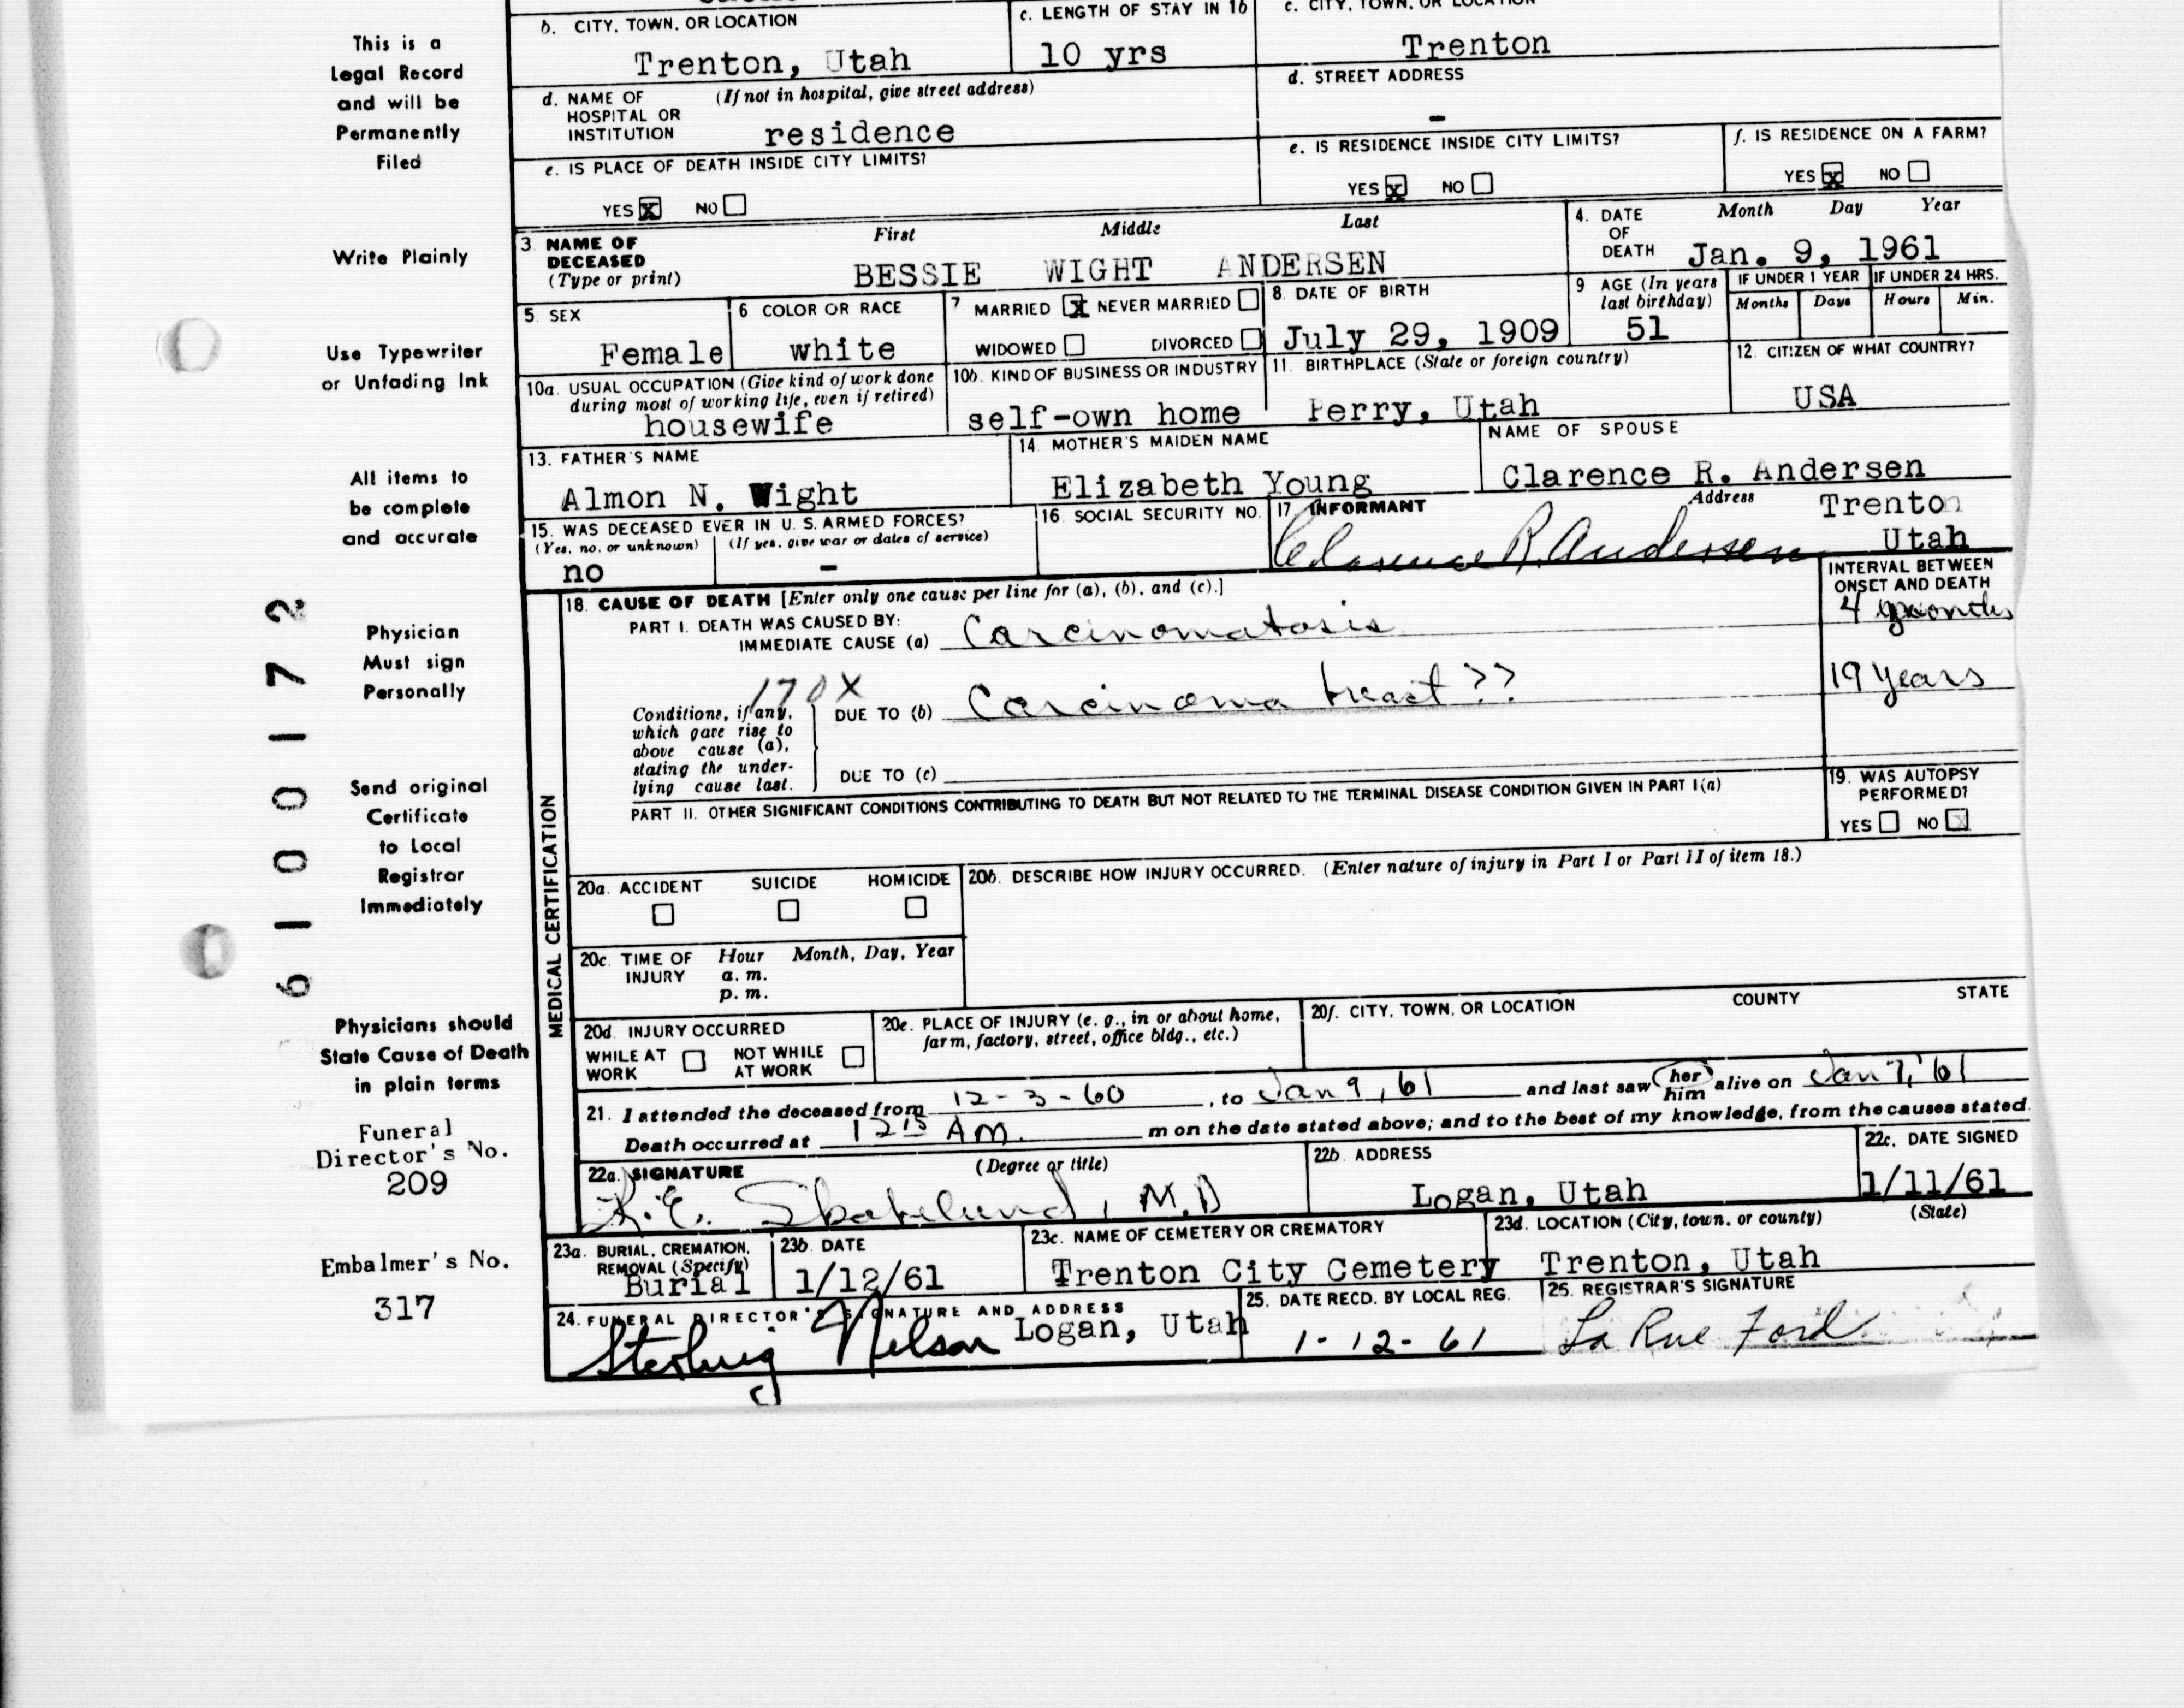 b. CITY, TOWN, OR LOCATION
Trenton, Utah
c. LENGTH OF STAY IN 1b
10 yrs
c. CITY, TOWN, OR LOCATION
Trenton
d. NAME OF HOSPITAL OR INSTITUTION (If not in hospital, give street address)
residence
d. STREET ADDRESS
-
e. IS PLACE OF DEATH INSIDE CITY LIMITS?
YES X NO
e. IS RESIDENCE INSIDE CITY LIMITS?
YES X NO
f. IS RESIDENCE ON A FARM?
YES X NO
3. NAME OF DECEASED (Type or print)
First Middle Last
BESSIE WIGHT ANDERSEN
4. DATE OF DEATH Month Day Year
Jan. 9, 1961
5. SEX
Female
6 COLOR OR RACE
white
7 MARRIED X NEVER MARRIED
WIDOWED DIVORCED
8. DATE OF BIRTH
July 29, 1909
9 AGE (In years last birthday)
51
IF UNDER 1 YEAR
Months Days
IF UNDER 24 HRS.
Hours Min.
10a. USUAL OCCUPATION (Give kind of work done during most of working life, even if retired)
housewife
10b. KIND OF BUSINESS OR INDUSTRY
self-own home
11. BIRTHPLACE (State or foreign country)
Perry, Utah
12. CITIZEN OF WHAT COUNTRY?
USA
13. FATHER'S NAME
Almon N. Wight
14. MOTHER'S MAIDEN NAME
Elizabeth Young
NAME OF SPOUSE
Clarence R. Andersen
15. WAS DECEASED EVER IN U. S. ARMED FORCES?
(Yes, no, or unknown) (If yes, give war or dates of service)
no -
16. SOCIAL SECURITY NO.
17. INFORMANT Address
Clarence R. Andersen
Trenton
Utah
MEDICAL CERTIFICATION
18. CAUSE OF DEATH [Enter only one cause per line for (a), (b), and (c).]
INTERVAL BETWEEN ONSET AND DEATH
PART I. DEATH WAS CAUSED BY:
IMMEDIATE CAUSE (a) Carcinomatosis
4 months
170X
Conditions, if any, which gave rise to above cause (a), stating the under-lying cause last.
DUE TO (b) Carcinoma breast ??
19 years
DUE TO (c)
PART II. OTHER SIGNIFICANT CONDITIONS CONTRIBUTING TO DEATH BUT NOT RELATED TO THE TERMINAL DISEASE CONDITION GIVEN IN PART I(a)
19. WAS AUTOPSY PERFORMED?
YES NO X
20a. ACCIDENT SUICIDE HOMICIDE
20b. DESCRIBE HOW INJURY OCCURRED. (Enter nature of injury in Part I or Part II of item 18.)
20c. TIME OF INJURY Hour Month, Day, Year
a. m.
p. m.
20d. INJURY OCCURRED
WHILE AT WORK NOT WHILE AT WORK
20e. PLACE OF INJURY (e. g., in or about home, farm, factory, street, office bldg., etc.)
20f. CITY, TOWN, OR LOCATION COUNTY STATE
21. I attended the deceased from 12-3-60, to Jan 9, 61 and last saw her him alive on Jan 7, '61
Death occurred at 12 15 AM. m on the date stated above; and to the best of my knowledge, from the causes stated.
22a. SIGNATURE (Degree or title)
M.D
22b. ADDRESS
Logan, Utah
22c. DATE SIGNED
1/11/61
23a. BURIAL, CREMATION, REMOVAL (Specify)
Burial
23b. DATE
1/12/61
23c. NAME OF CEMETERY OR CREMATORY
Trenton City Cemetery
23d. LOCATION (City, town, or county) (State)
Trenton, Utah
24. FUNERAL DIRECTOR'S SIGNATURE AND ADDRESS
Sterling Nelson Logan, Utah
25. DATE RECD. BY LOCAL REG.
1-12-61
25. REGISTRAR'S SIGNATURE
La Rue Ford
This is a
Legal Record
and will be
Permanently
Filed
Write Plainly
Use Typewriter
or Unfading Ink
All items to
be complete
and accurate
Physician
Must sign
Personally
Send original
Certificate
to Local
Registrar
Immediately
Physicians should
State Cause of Death
in plain terms
Funeral
Director's No.
209
Embalmer's No.
317
61 00172